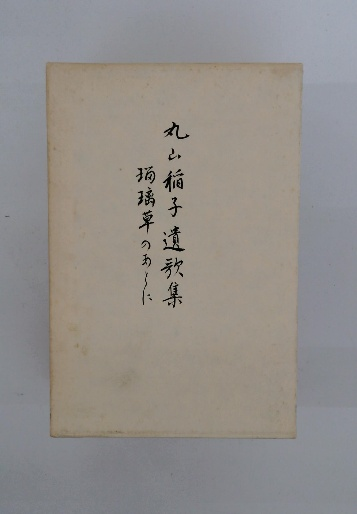 丸山稲子遺歌集
瑠璃草のあとに